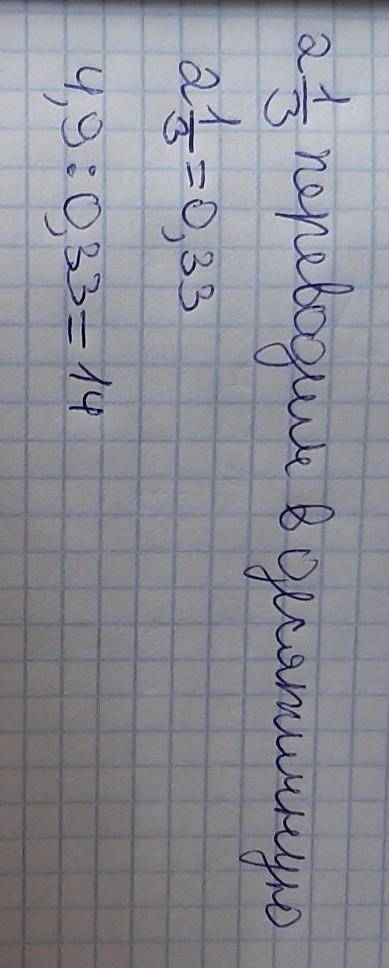 2 1/3 переводим в десятичную
2 1/3 = 0,33
4,9 : 0,33 = 14